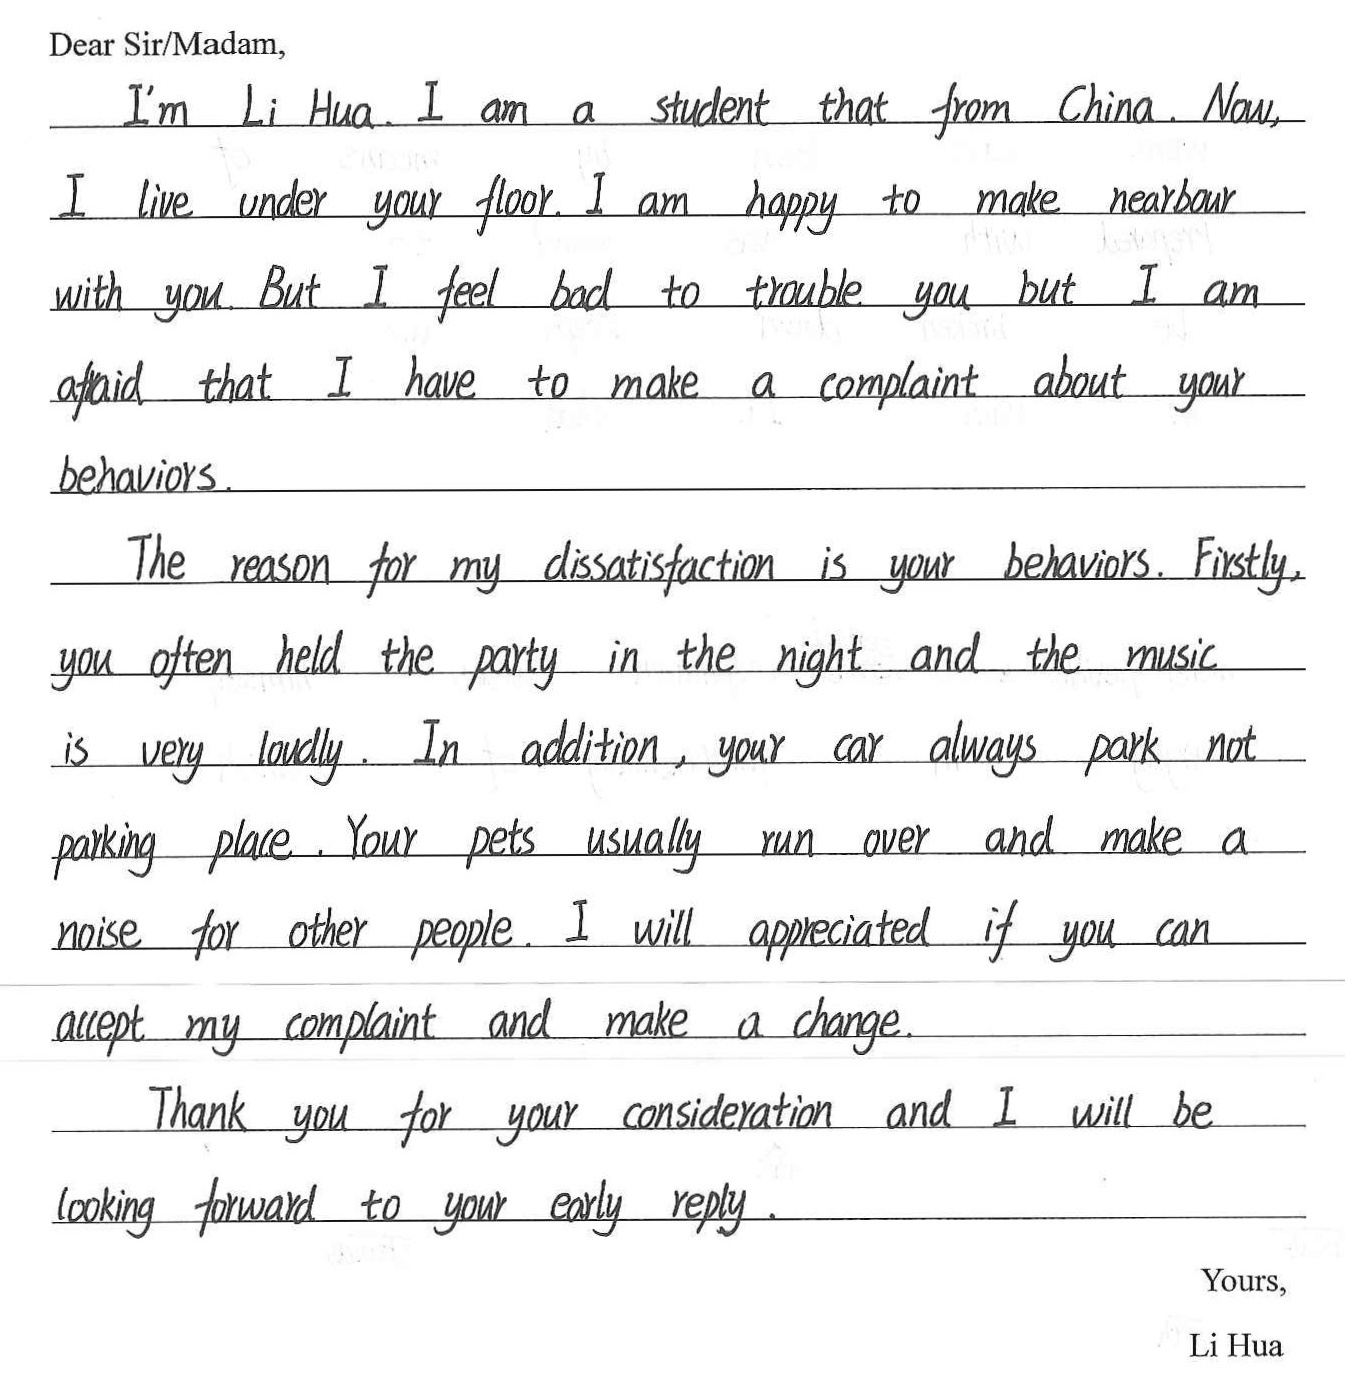 Dear Sir/Madam,
I'm Li Hua. I am a student that from China. Now,
I live under your floor. I am happy to make nearbour
with you. But I feel bad to trouble you but I am
afraid that I have to make a complaint about your
behaviors.
The reason for my dissatisfaction is your behaviors. Firstly,
you often held the party in the night and the music
is very loudly. In addition, your car always park not
parking place. Your pets usually run over and make a
noise for other people. I will appreciated if you can
accept my complaint and make a change.
Thank you for your consideration and I will be
looking forward to your early reply.
Yours,
Li Hua